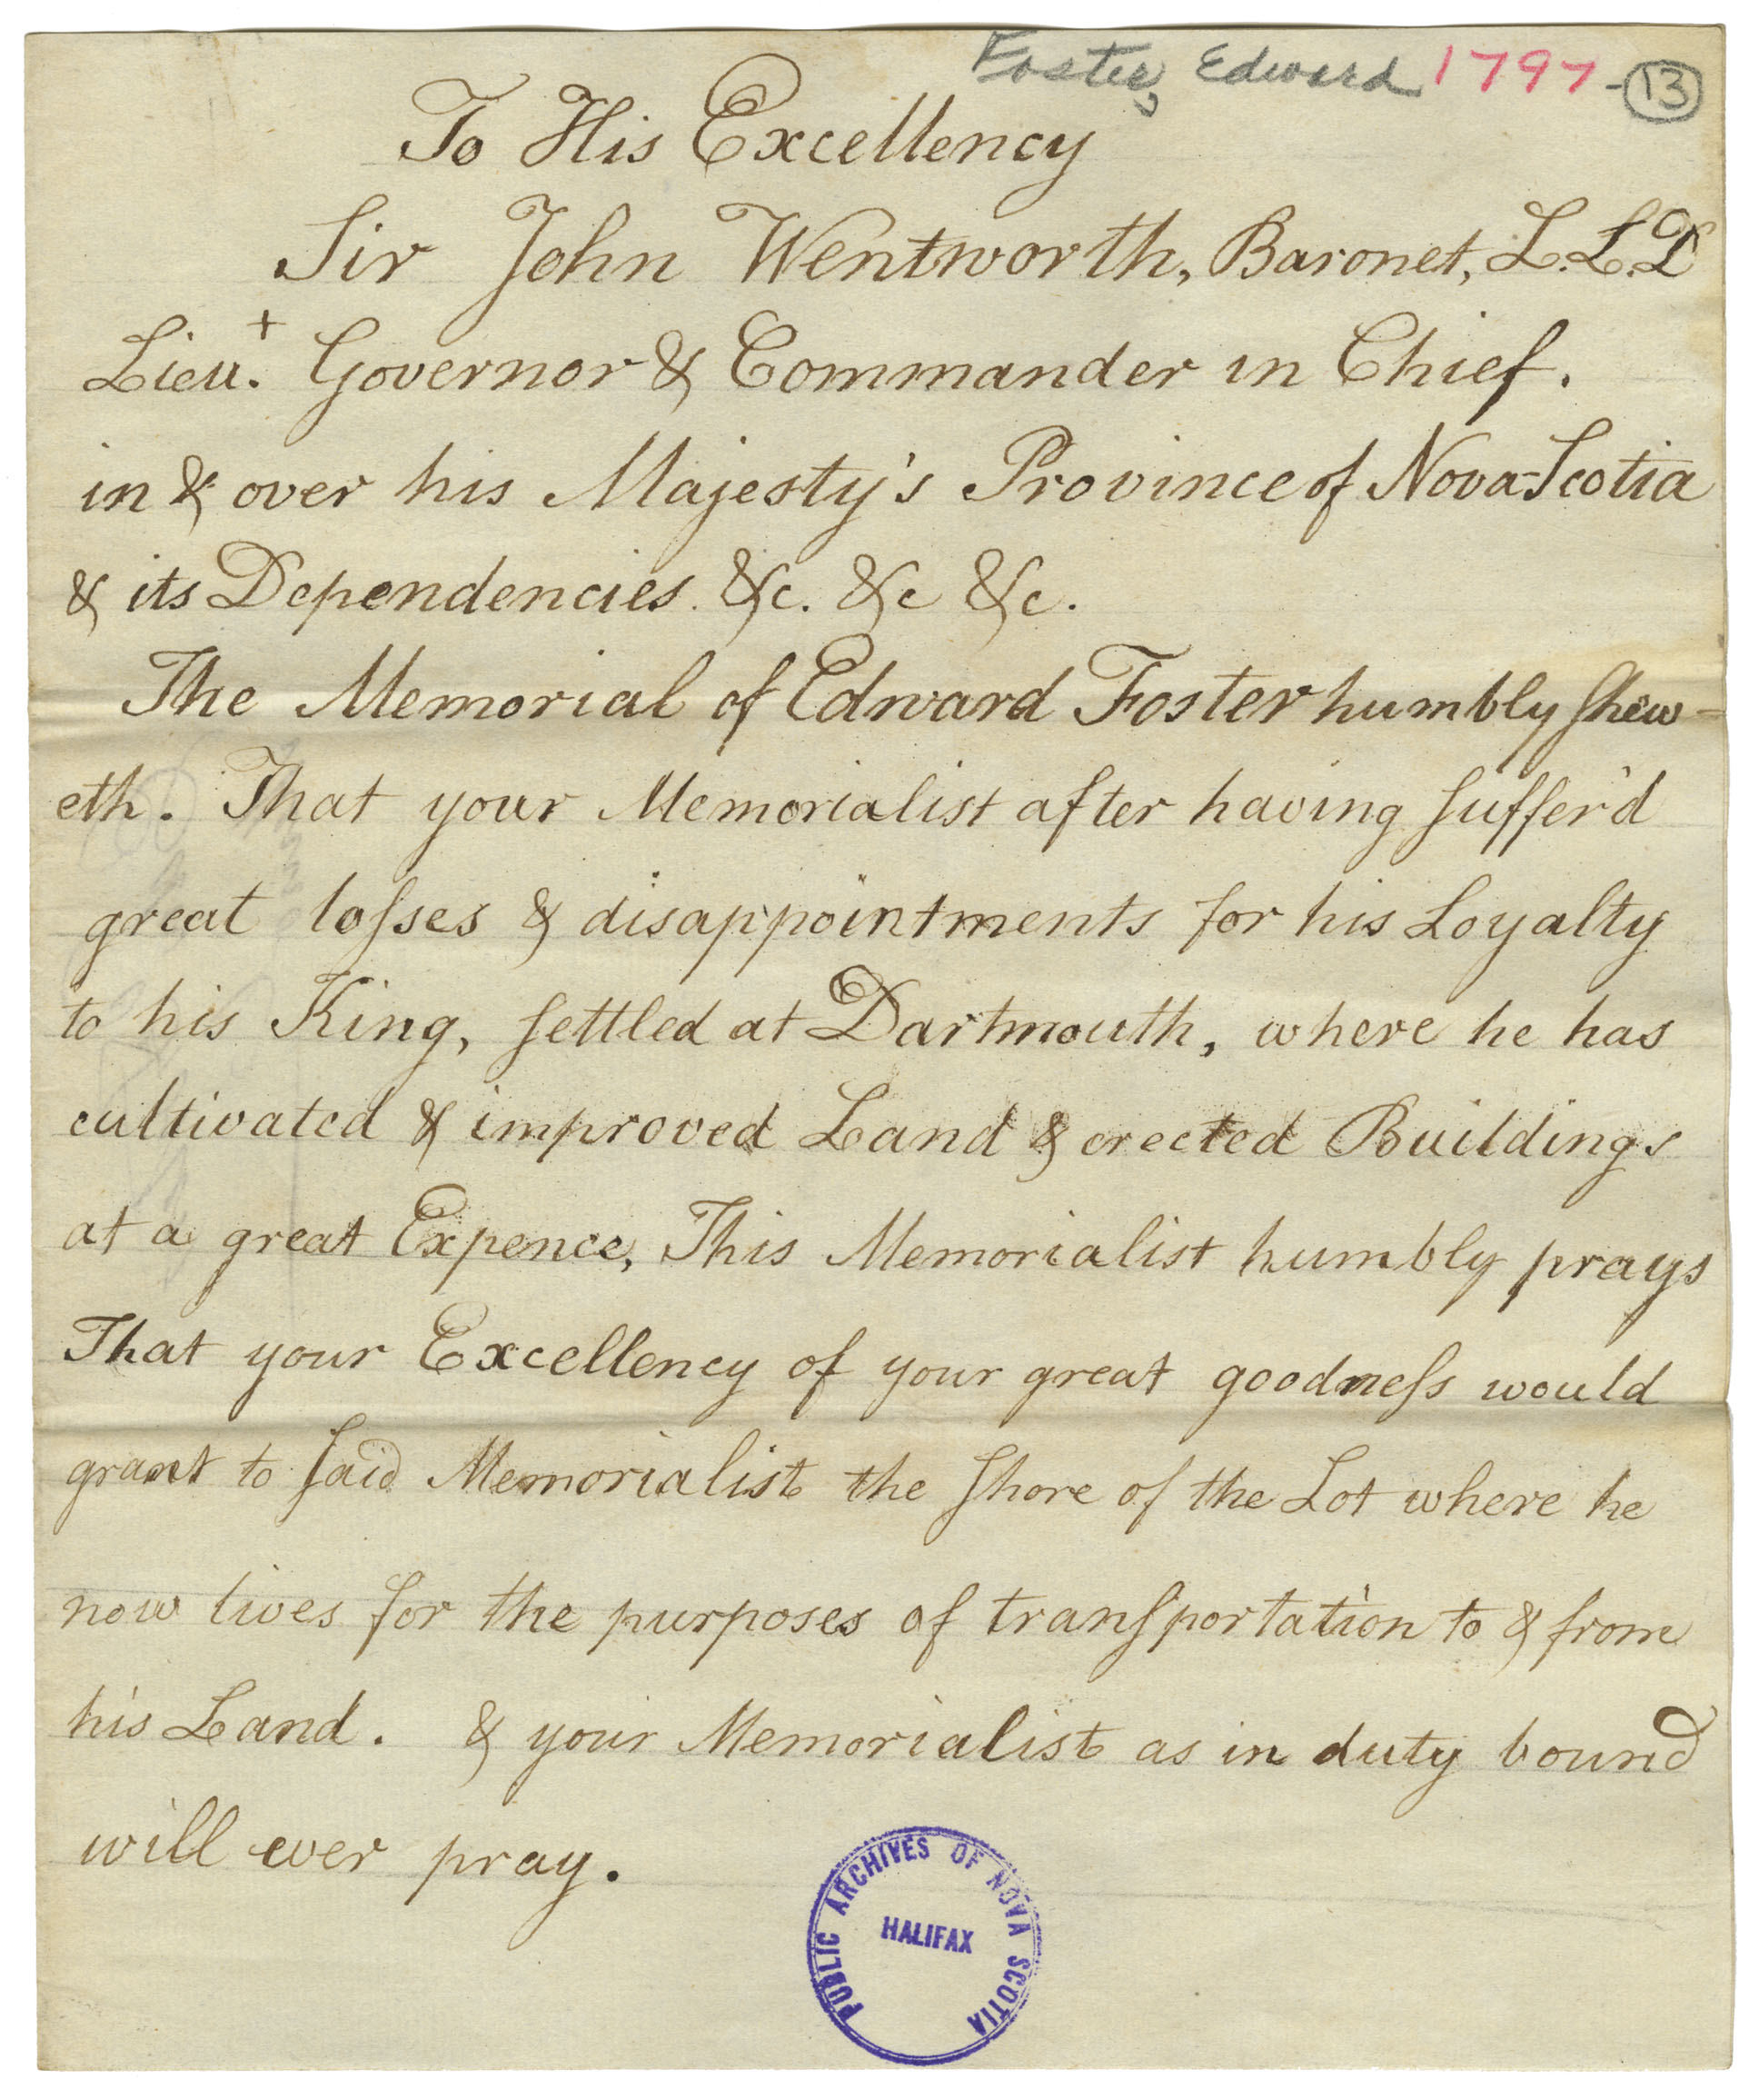 Foster, Edward 1797 - 13
To His Excellency
Sir John Wentworth, Baronet, L.L.D
Lieu.t Governor & Commander in Chief.
in & over his Majesty's Province of Nova-Scotia
& its Dependencies. &c. &c &c.
The Memorial of Edward Foster humbly shew-
eth. That your Memorialist after having suffer'd
great losses & disappointments for his Loyalty
to his King, settled at Dartmouth, where he has
cultivated & improved Land & erected Buildings
at a great Expence, This Memorialist humbly prays
That your Excellency of your great goodness would
grant to said Memorialist the shore of the Lot where he
now lives for the purposes of transportation to & from
his Land. & your Memorialist as in duty bound
will ever pray.
PUBLIC ARCHIVES OF NOVA SCOTIA
HALIFAX